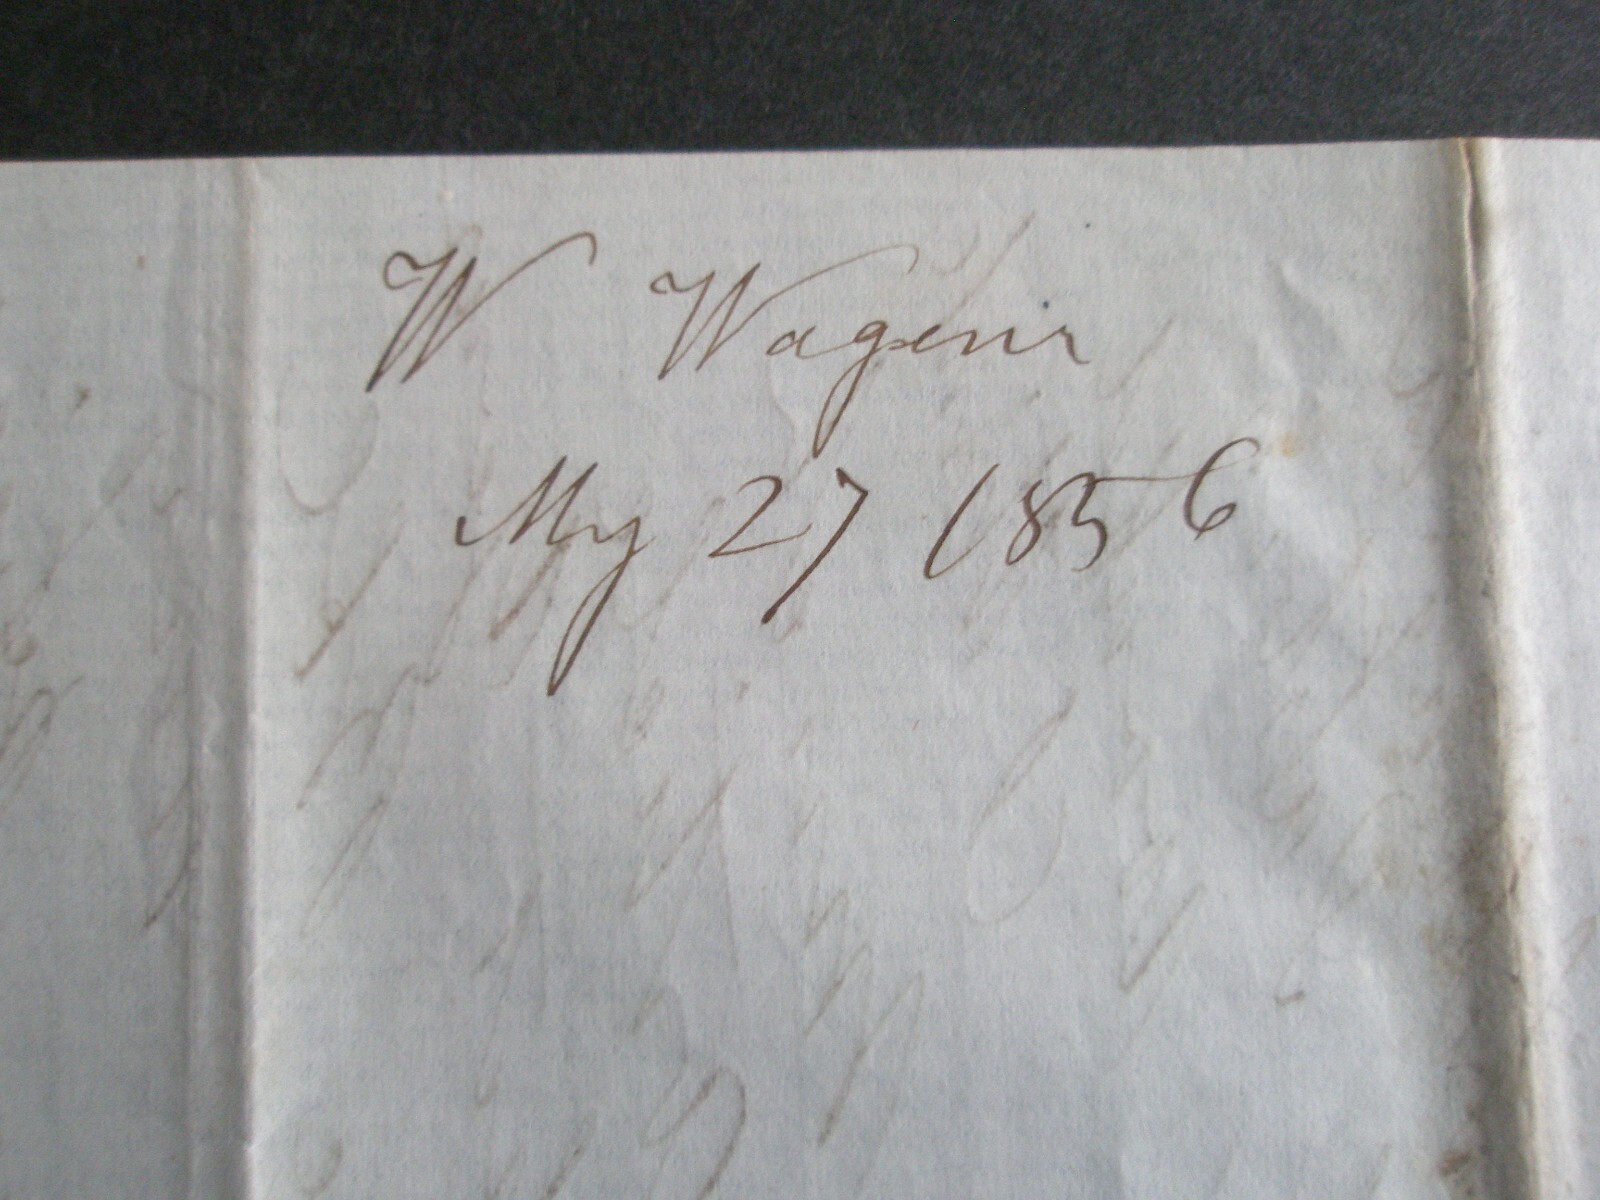 W Wagenir
My 27 1856